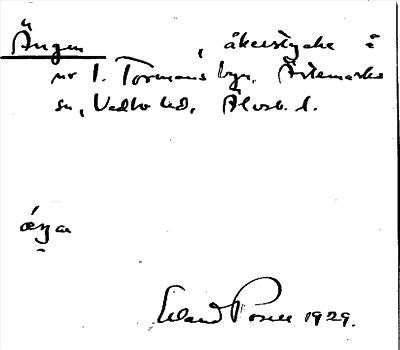 Ängen, åkerstycke i
nr 1. Tormans byn, Ärtemarks
sn, Vedbo hd, Älvsb. l.
Erland Rosell 1929.